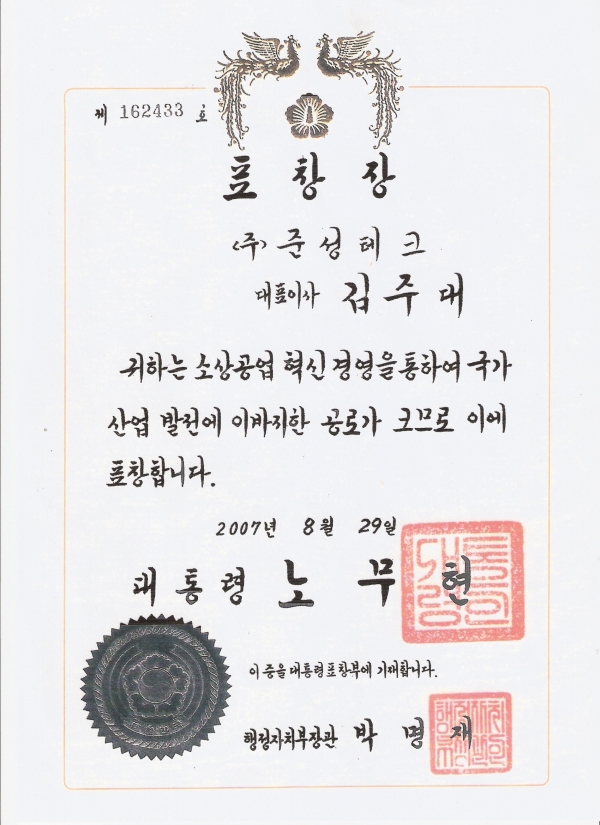 제 162433 호
표창장
(주) 준성테크
대표이사 김주대
귀하는 소상공업 혁신 경영을 통하여 국가
산업 발전에 이바지한 공로가 크므로 이에
표창합니다.
2007년 8월 29일
대통령 노무현
이 증을 대통령표창부에 기재합니다.
행정자치부장관 박명재